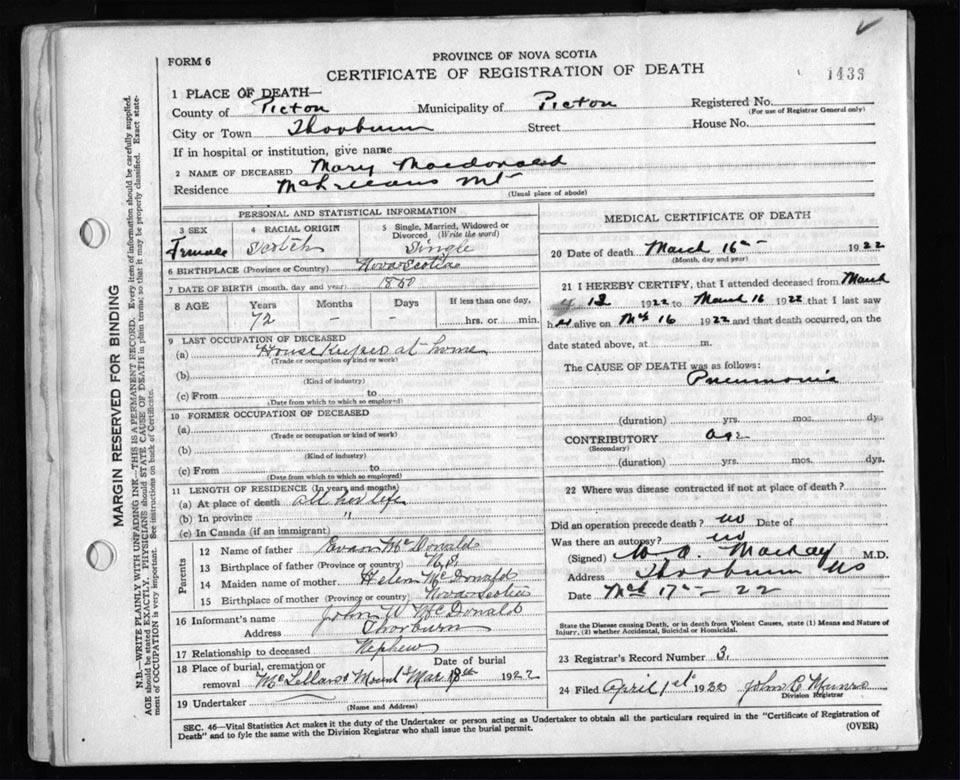 PROVINCE OF NOVA SCOTIA
FORM 6
CERTIFICATE OF REGISTRATION OF DEATH
1433
1 PLACE OF DEATH—
County of Pictou Municipality of Pictou Registered No.
(For use of Registrar General only)
City or Town Thorburn Street House No.
If in hospital or institution, give name
2 NAME OF DECEASED Mary Macdonald
Residence McLellans Mt
(Usual place of abode)
PERSONAL AND STATISTICAL INFORMATION
3 SEX 4 RACIAL ORIGIN 5 Single, Married, Widowed or Divorced (Write the word)
Female Scotch Single
6 BIRTHPLACE (Province or Country) Nova Scotia
7 DATE OF BIRTH (month, day and year) 1850
8 AGE Years Months Days If less than one day,
72 – – hrs. or min.
9 LAST OCCUPATION OF DECEASED
(a) House Keeper at home
(Trade or occupation or kind or work)
(b)
(Kind of industry)
(c) From to
(Date from which to which so employed)
10 FORMER OCCUPATION OF DECEASED
(a)
(Trade or occupation or kind of work)
(b)
(Kind of industry)
(c) From to
(Date from which to which so employed)
11 LENGTH OF RESIDENCE (In years and months)
(a) At place of death all her life
(b) In province "
(c) In Canada (if an immigrant)
Parents
12 Name of father McDonald
13 Birthplace of father (Province or country) N.S.
14 Maiden name of mother Helen McDonald
15 Birthplace of mother (Province or country) Nova Scotia
16 Informant's name John W McDonald
Address Thorburn
17 Relationship to deceased Nephew
18 Place of burial, cremation or removal McLellans Mount Date of burial Mar 18th 1922
19 Undertaker
(Name and Address)
MEDICAL CERTIFICATE OF DEATH
20 Date of death March 16th 1922
(Month, day and year)
21 I HEREBY CERTIFY, that I attended deceased from March
12 1922 to March 16 1922 that I last saw
her alive on Mch 16 1922 and that death occurred, on the
date stated above, at m.
The CAUSE OF DEATH was as follows:
Pneumonia
(duration) yrs. mos. dys
CONTRIBUTORY age
(Secondary)
(duration) yrs. mos. dys.
22 Where was disease contracted if not at place of death?
Did an operation precede death? no Date of
Was there an autopsy? no
(Signed) Mackay M.D.
Address Thorburn NS
Date Mch 17th – 22
State the Disease causing Death, or in death from Violent Causes, state (1) Means and Nature of
Injury, (2) whether Accidental, Suicidal or Homicidal.
23 Registrar's Record Number 3.
24 Filed April 1st 1922 John C Munro
Division Registrar
SEC. 46—Vital Statistics Act makes it the duty of the Undertaker or person acting as Undertaker to obtain all the particulars required in the "Certificate of Registration of
Death" and to fyle the same with the Division Registrar who shall issue the burial permit.
(OVER)
MARGIN RESERVED FOR BINDING
N.B.—WRITE PLAINLY WITH UNFADING INK—THIS IS A PERMANENT RECORD. Every item of information should be carefully supplied.
AGE should be stated EXACTLY. PHYSICIANS should STATE CAUSE OF DEATH in plain terms; so that it may be properly classified. Exact statement
of OCCUPATION is very important. See instructions on back of Certificate.